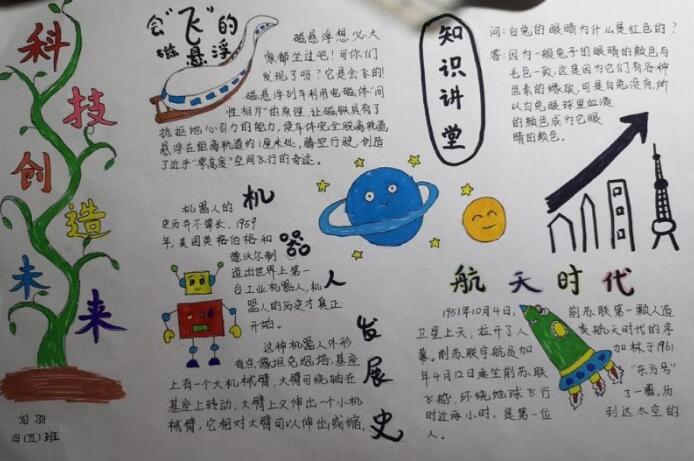 科技创造未来
会“飞”的
磁悬浮
磁悬浮想必大
家都坐过吧！可你们
发现了吗？它是会飞的！
磁悬浮列车利用电磁体“同
性相斥”的原理，让磁铁具有了
抗拒地心引力的能力，使车体完全脱离轨道，
悬浮在距离轨道约1厘米处，腾空行驶，创造
了近乎“零高度”空间飞行的奇迹。
知识讲堂
问：白兔的眼睛为什么是红色的？
答：因为一般兔子的眼睛的颜色与
毛色一致，这是因为它们有各种
色素的缘故，可是白兔没有，所
以白兔眼球里血液
的颜色成为它眼
睛的颜色。
机器人发展史
机器人的
史历并不算长，1959
年，美国英格伯格和
德沃尔制
造出世界上第一
台工业机器人，机
器人的历史才真正
开始。
这种机器人外形
有点像坦克炮塔，基座
上有一个大机械臂，大臂可绕轴在
基座上转动，大臂上又伸出一个小机
械臂，它相对大臂可以伸出或缩。
航天时代
1951年10月4日，前苏联第一颗人造
卫星上天，拉开了人类航天时代的序
幕。前苏联宇航员加加林于1961
年4月12日乘坐前苏联“东方号”
飞船，环绕地球飞行了一圈。历
时近两小时，是第一位到达太空的
人。
四（五）班